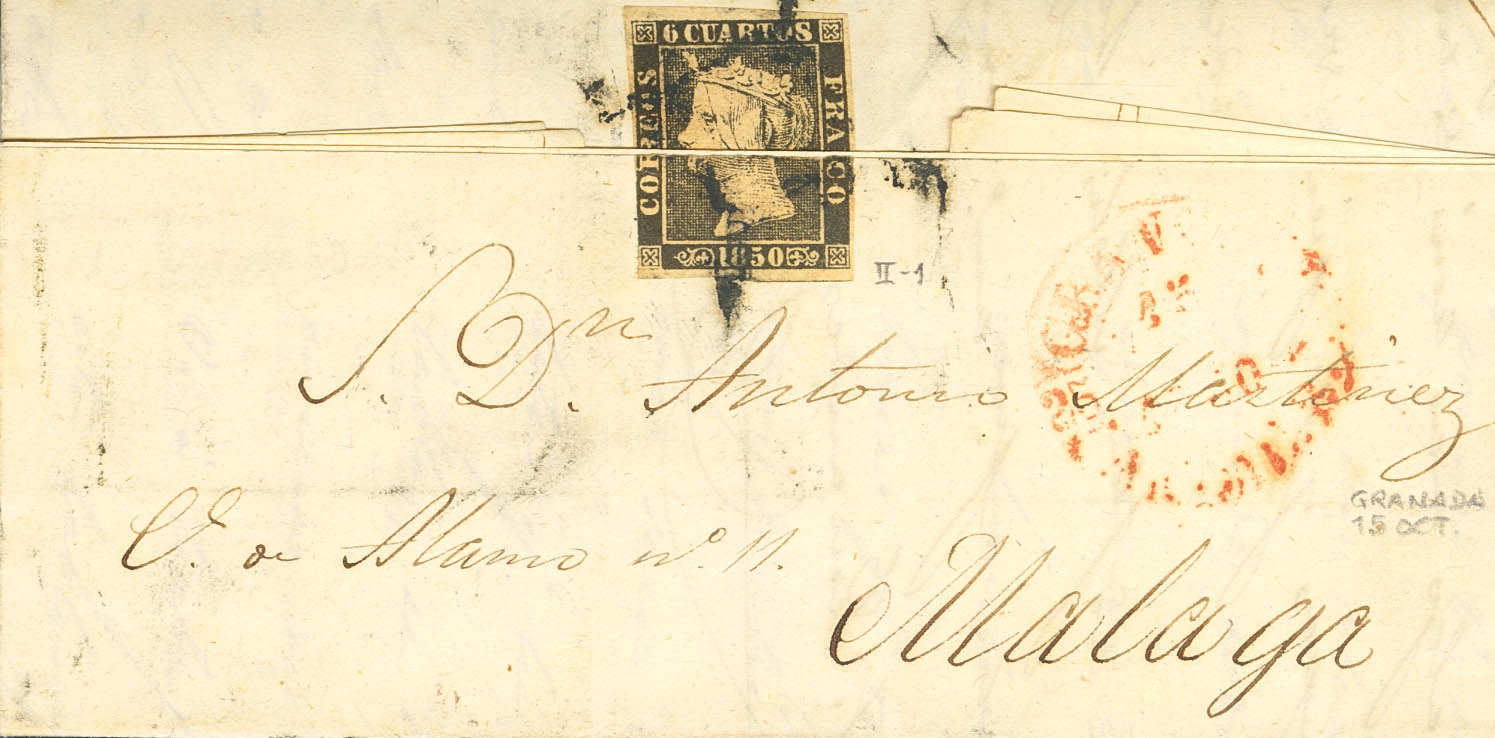 6 CUARTOS
CORREOS
FRANCO
1850
II-1
S. Dn. Antonio Martinez
C. de Alamo nº. 11.
Malaga
GRANADA
15 OCT.